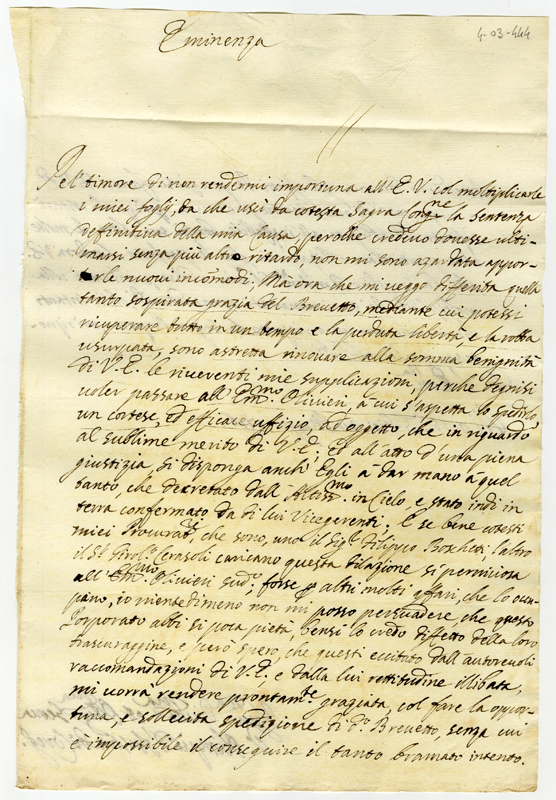 Eminenza
4-03-444
Pel' timore di non rendermi importuna all' E. V. col moltiplicarle
i miei foglj, da che uscì da cotesta Sagra Congne la sentenza
deffinitiva della mia Causa perolhe credevo dovesse ulti-
marsi senza più altro ritardo, non mi sono azardata appor-
tarle nuovi incomodi. Ma ora che mi veggo differita quella
tanto sospirata grazia del Brevetto, mediante cui potessi
ricuperare tutto in un tempo e la perduta libertà e la robba
usurpata, sono astretta rinovare alla somma benignità
di V. E. le riverenti mie supplicazioni, perche degnisi
voler passare all' Emo Olivieri, à cui s'aspetta lo spedirlo,
un cortese, ed efficace uffizio, ad oggetto, che in riguardo
al sublime merito di V. E., ed all' atto d' una piena
giustizia, si disponga anch' Egli à dar mano à quel
tanto, che decretato dall' Altissmo in Cielo e stato indi in
terra confermato da di lui Vicegerenti. E se bene cotesti
miei Procuratri, che sono, uno il Sigr Filippo Boschetti, l'altro
il Sr Girolo Cerasoli caricano questa dilazione si perniciosa
all' Emo Olivieri sudo, forse p altri molti affari, che lo ocu-
pano, io nientedimeno non mi posso persuadere, che questo
Porporato abbi si poca pietà, bensi lo credo diffetto della loro
trascuraggine, e però spero, che questi eccitato dall' autorevoli
raccomandazioni di V. E. e dalla lui rettitudine illibata,
mi vorrà rendere prontamte graziata, col fare la oppor-
tuna, e sollecita spedizione di do Brevetto, senza cui
è impossibile il conseguire il tanto bramato intento.